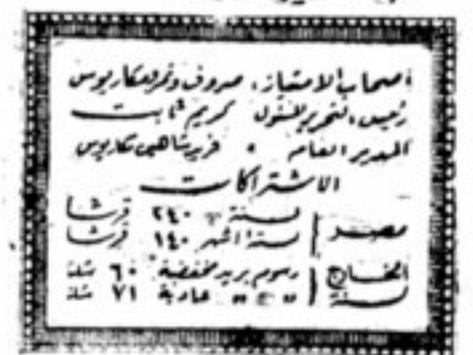 اصحاب الامتياز: صروف ونمر ومكاريوس
رئيس التحرير المسئول كريم ثابت
المدير العام • فريد شاهين مكاريوس
الاشتراكات
لسنة ٢٤٠ قرشا
مصر
ستة اشهر ١٤٠ قرشا
الخارج رسوم بريد مخفضة ٦٠ شلنا
لسنة " " عادية ٧١ شلنا